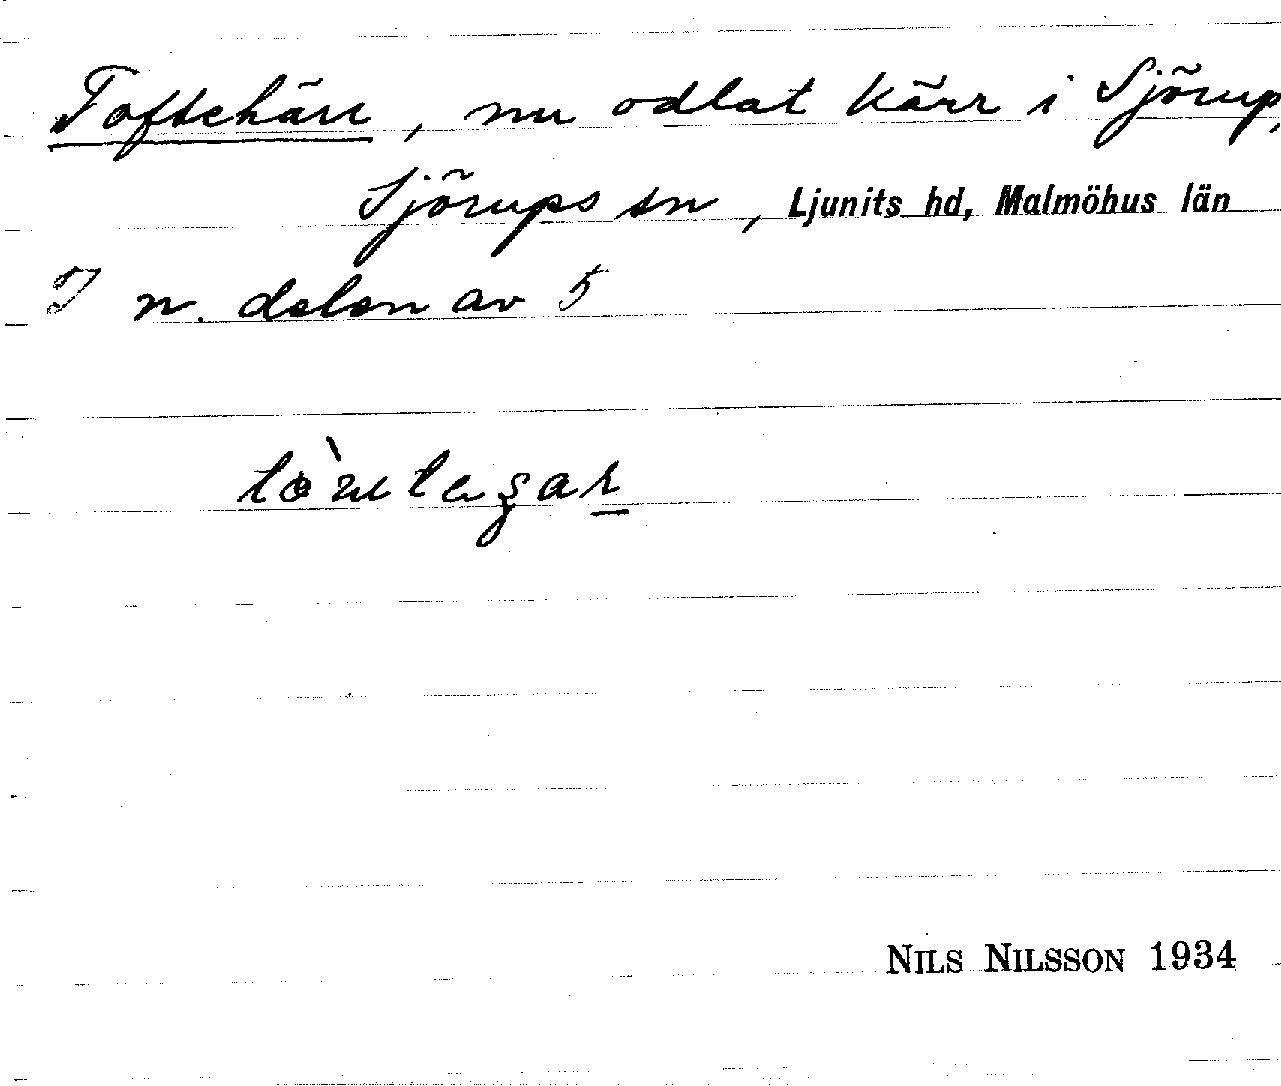 Toftekärr, nu odlat kärr i Sjörup,
Sjörups sn, Ljunits hd, Malmöhus län
I n. delen av 5
NILS NILSSON 1934